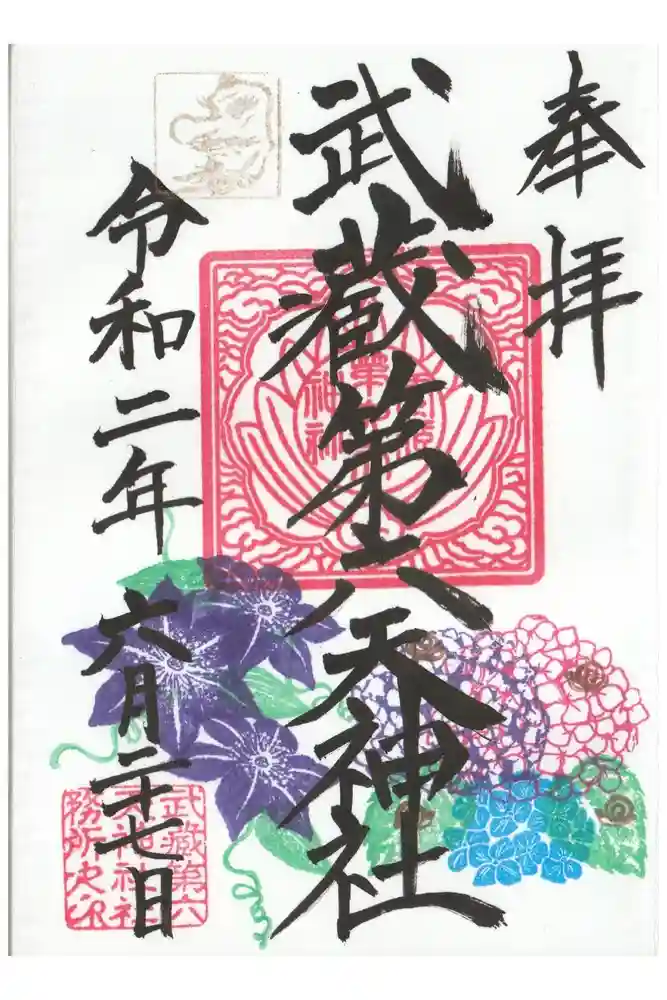 奉拝
武蔵第六天神社
令和二年
六月二十七日
武蔵第六
天神社社
務所之印